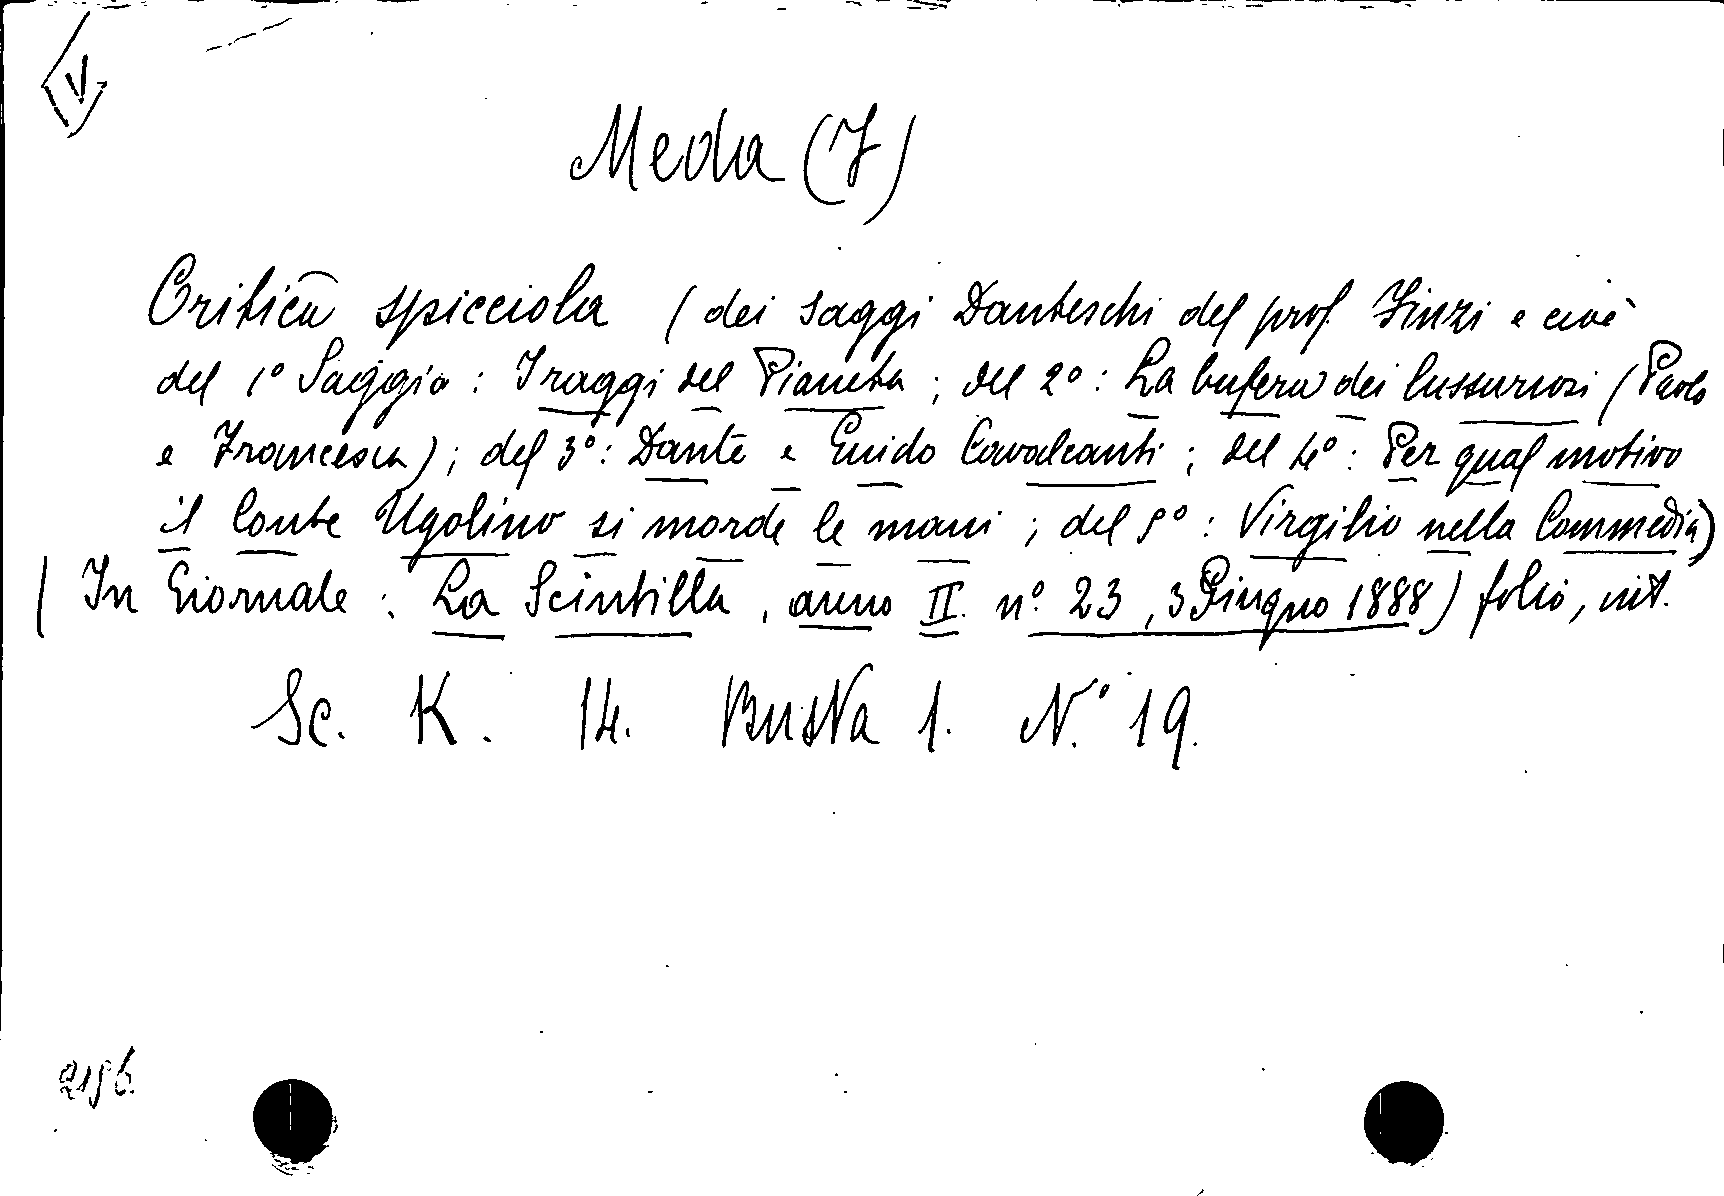 V.
Meda (F)
Critica spicciola (dei saggi Danteschi del prof. Finzi e cioè
del 1º Saggio: I raggi del Pianeta; del 2º: La bufera dei lussuriosi (Paolo
e Francesca); del 3º: Dante e Guido Cavalcanti; del 4º: Per qual motivo
il Conte Ugolino si morde le mani; del 5º: Virgilio nella Commedia)
(In Giornale: La Scintilla, anno II. nº. 23, 3 Giugno 1888) folio, int.
Sc. K. 14. Busta 1. N.º 19.
2156.